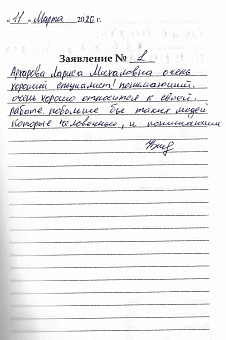 „ 11 „ Марта 2026 г.
Заявление № 2
Лариса Михаловна очень
хороший специалист! понимающий.
очень хорошо относится к своей
работе, побольше бы таких людей
которые человечные, и понимающим